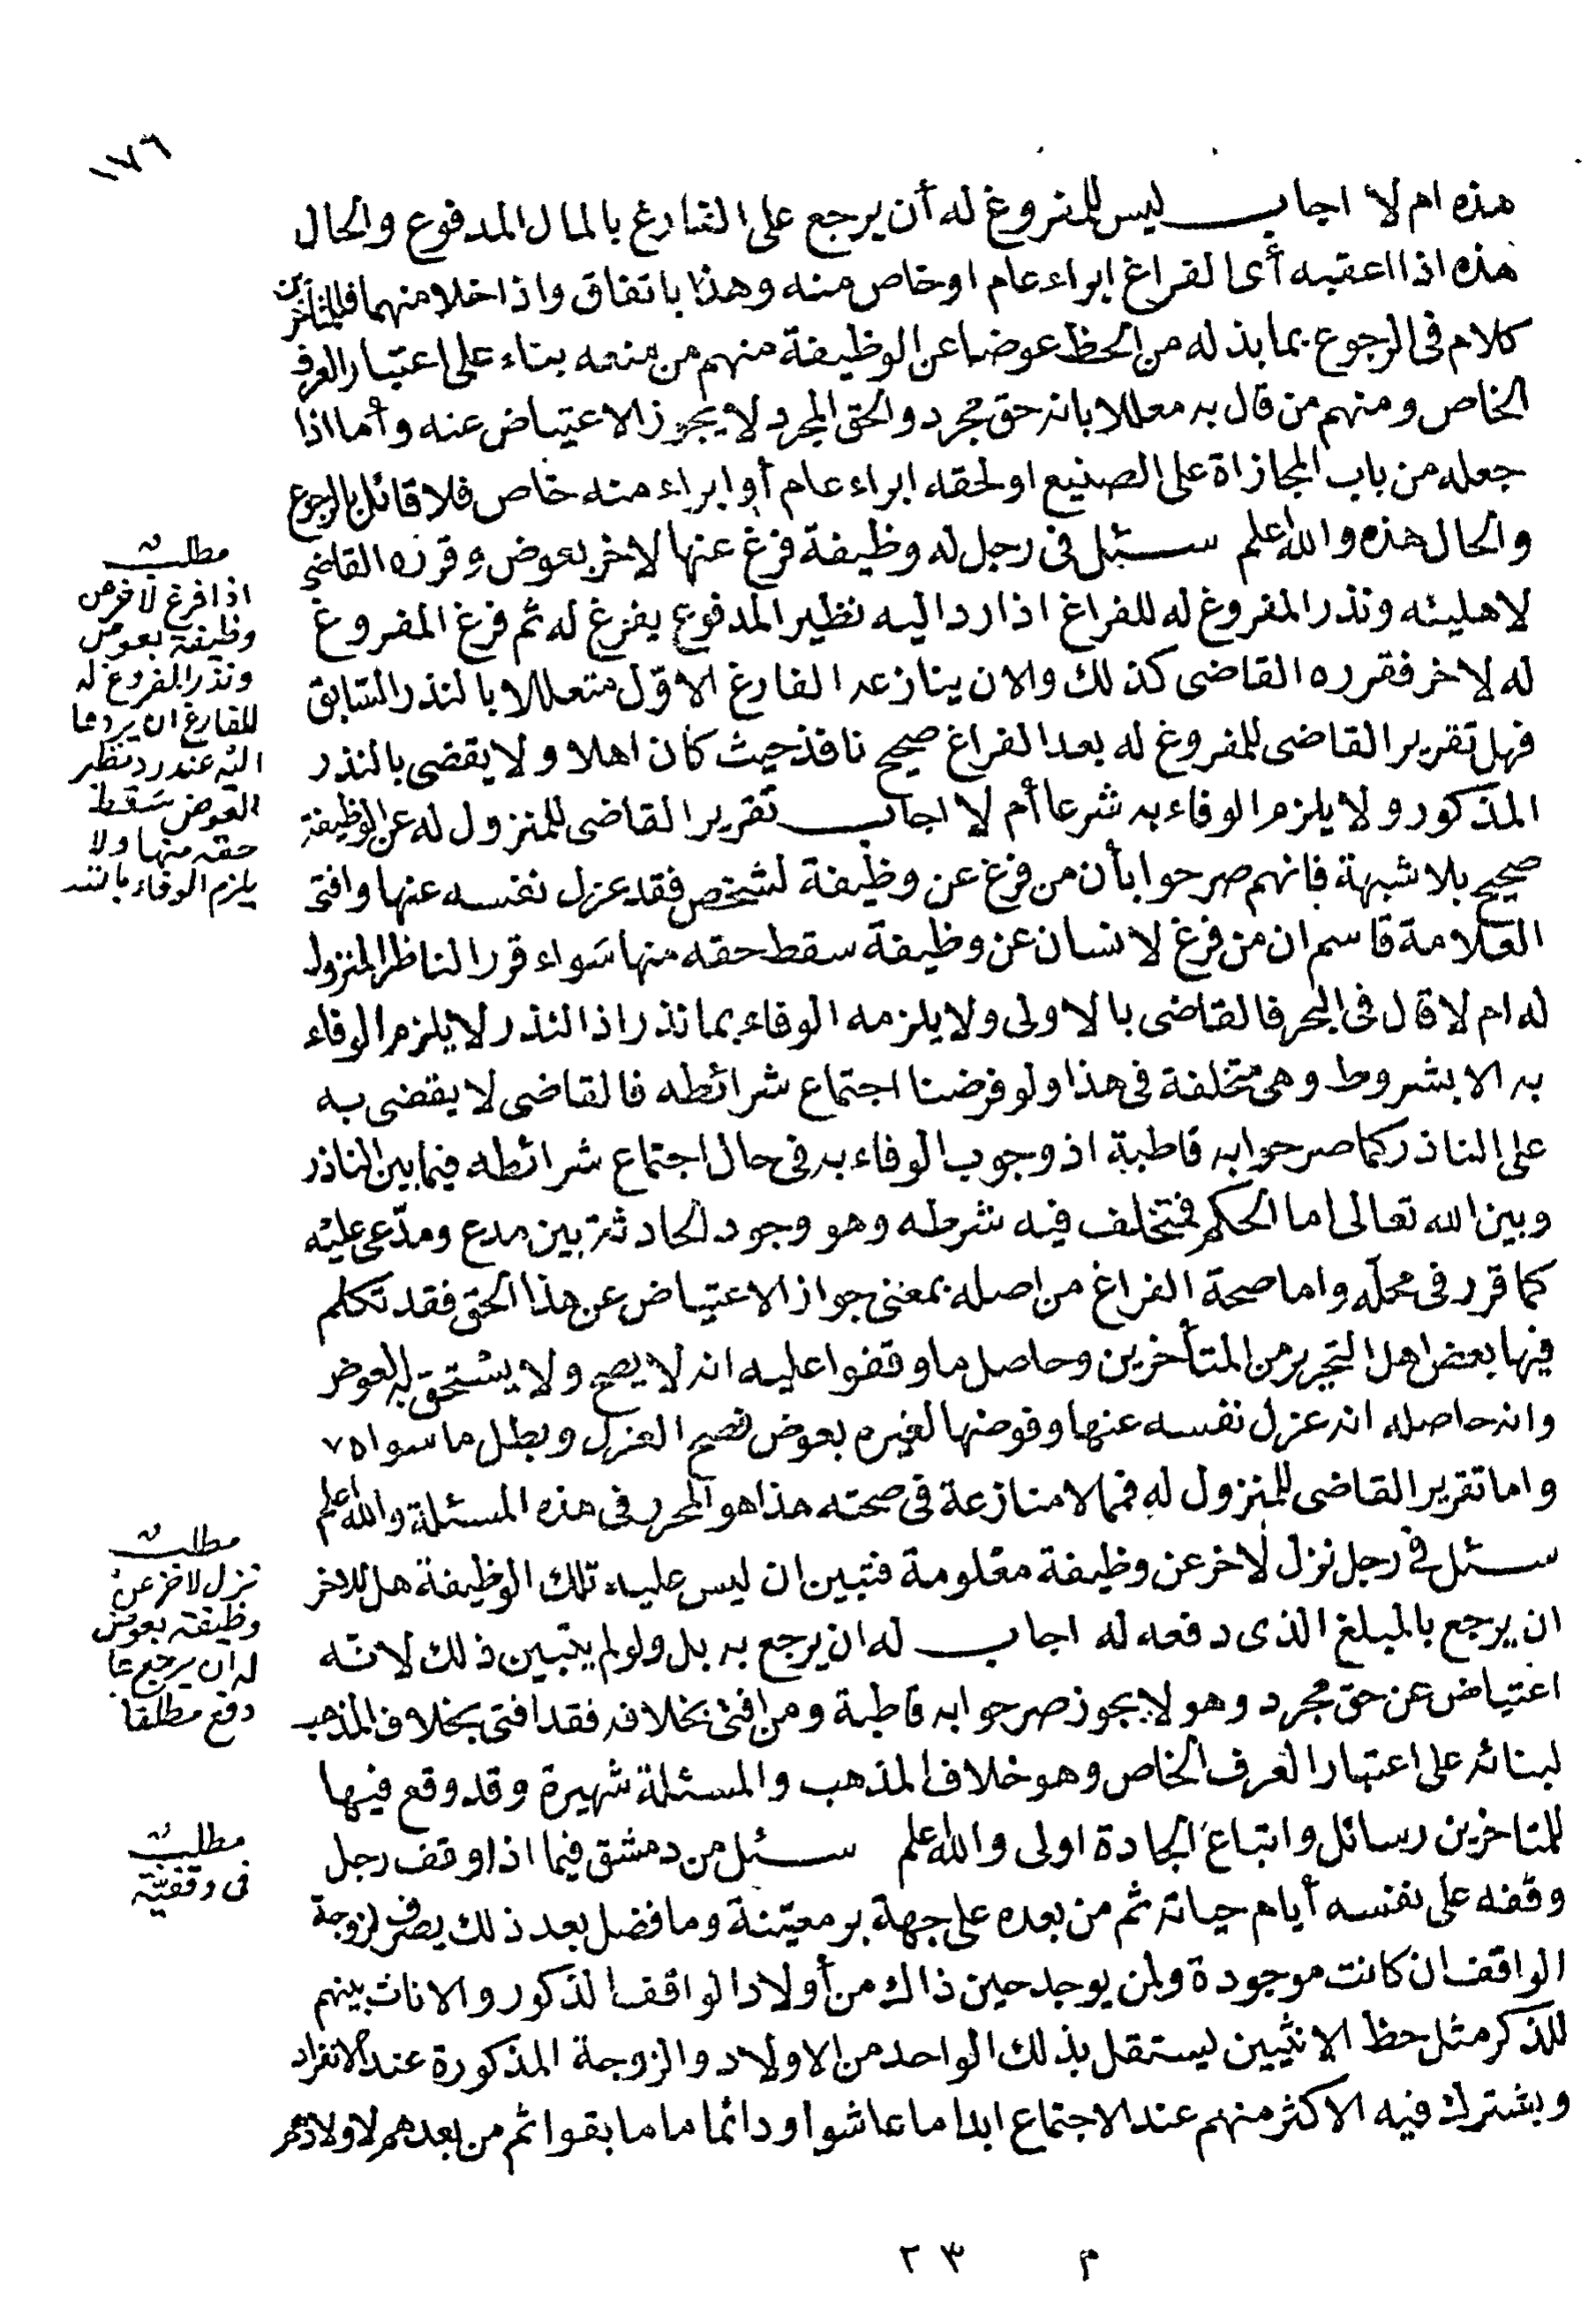 ١٧٦
هذه ام لا اجاب ليس للمفروغ له أن يرجع على الفارغ بالمال المدفوع والحال
هذه اذا اعقبه أى الفراغ ابراء عام او خاص منه وهذا باتفاق واذا خلا منهما فللمتأخرين
كلام فى الرجوع بما بذله من الحظ عوضا عن الوظيفة منهم من منعه بناء على اعتبار العرف
الخاص ومنهم من قال به معللا بانه حق مجرد والحق المجرد لا يجوز الاعتياض عنه وأما اذا
جعله من باب المجازاة على الصنيع او لحقه ابراء عام أو ابراء منه خاص فلا قائل بالرجوع
والحال هذه والله اعلم سئل فى رجل له وظيفة فرغ عنها لاخر بعوض وقرره القاضى
لاهليته ونذر المفروغ له للفراغ اذا رد اليه نظير المدفوع يفرغ له ثم فرغ المفروغ
له لاخر فقرره القاضى كذلك والان ينازعه الفارغ الاوّل متعللا بالنذر السابق
فهل تقرير القاضى للمفروغ له بعد الفراغ صحيح نافذ حيث كان اهلا ولا يقضى بالنذر
المذكور ولا يلزم الوفاء به شرعا أم لا اجاب تقرير القاضى للمنزول له عن الوظيفة
صحيح بلا شبهة فانهم صرحوا بأن من فرغ عن وظيفة لشخص فقد عزل نفسه عنها وافتى
العلامة قاسم ان من فرغ لانسان عن وظيفة سقط حقه منها سواء قرر الناظر المنزول
له ام لا قال فى البحر فالقاضى بالاولى ولا يلزمه الوفاء بما نذر اذ النذر لا يلزم الوفاء
به الا بشروط وهى متخلفة فى هذا ولو فرضنا اجتماع شرائطه فالقاضى لا يقضى به
على الناذر كما صرحوا به قاطبة اذ وجوب الوفاء به فى حال اجتماع شرائطه فيما بين الناذر
وبين الله تعالى اما الحكم فتخلف فيه شرطه وهو وجود الحادثة بين مدع ومدّعى عليه
كما قرر فى محلّه واما صحة الفراغ من اصله بمعنى جواز الاعتياض عن هذا الحق فقد تكلم
فيها بعض اهل التحرير من المتأخرين وحاصل ما وقفوا عليه انه لا يصح ولا يستحق به العوض
وانه حاصله انه عزل نفسه عنها وفوضها لغيره بعوض فصح العزل وبطل ما سواه
واما تقرير القاضى للمنزول له فمما لا منازعة فى صحته هذا هو المحرر فى هذه المسئلة والله اعلم
سئل فى رجل نزل لأخر عن وظيفة معلومة فتبين ان ليس عليه تلك الوظيفة هل للاخر
ان يرجع بالمبلغ الذى دفعه له اجاب له ان يرجع به بل ولو لم يتبين ذلك لانه
اعتياض عن حق مجرد وهو لا يجوز صرحوا به قاطبة ومن افتى بخلافه فقد افتى بخلاف المذهب
لبنائه على اعتبار العرف الخاص وهو خلاف المذهب والمسئلة شهيرة وقد وقع فيها
للمتاخرين رسائل واتباع الجادة اولى والله اعلم سئل من دمشق فيما اذا وقف رجل
وقفه على نفسه أيام حياته ثم من بعده على جهة بر معيّنة وما فضل بعد ذلك يصرف لزوجة
الواقف ان كانت موجودة ولمن يوجد حين ذاك من أولاد الواقف الذكور والاناث بينهم
للذكر مثل حظ الانثيين ليستقل بذلك الواحد من الاولاد والزوجة المذكورة عند الانفراد
ويشترك فيه الاكثر منهم عند الاجتماع ابدا ما عاشوا ودائما ما ما بقوا ثم من بعدهم لاولادهم
مطلب
اذا فرغ لاخر عن
وظيفة بعوض
ونذر المفروغ له
للفارغ ان يردها
اليه عند رد نظير
العوض سقط
حقه منها ولا
يلزم الوفاء بالنذر
مطلب
نزل لاخر عن
وظيفة بعوض
له ان يرجع بما
دفع مطلقا
مطلب
فى وقفيّة
م ٢٣